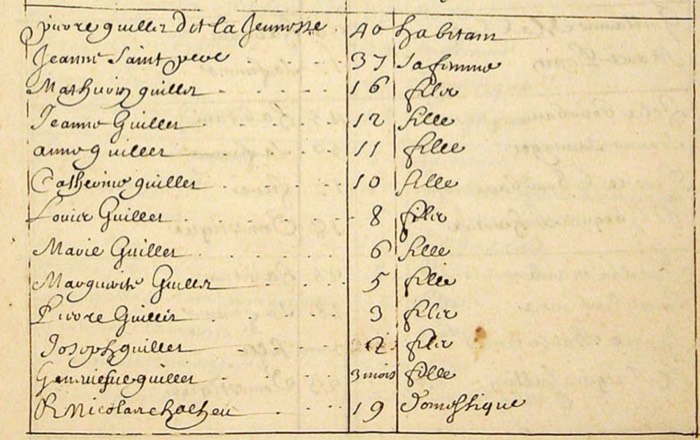 pierre quillet dit la Jeunesse 40 habitant
Jeanne Saint pere 37 sa femme
Mathurin quillet 16 filz
Jeanne Guillet 12 fille
anne quillet 11 fille
Catherine quillet 10 fille
Louis Guillet 8 filz
Marie Guillet 6 fille
Marguerite Guillet 5 fille
Pierre Guillet 3 filz
Joseph quillet 2 filz
Geneviefue quillet 3 mois fille
Nicolas 19 Domestique